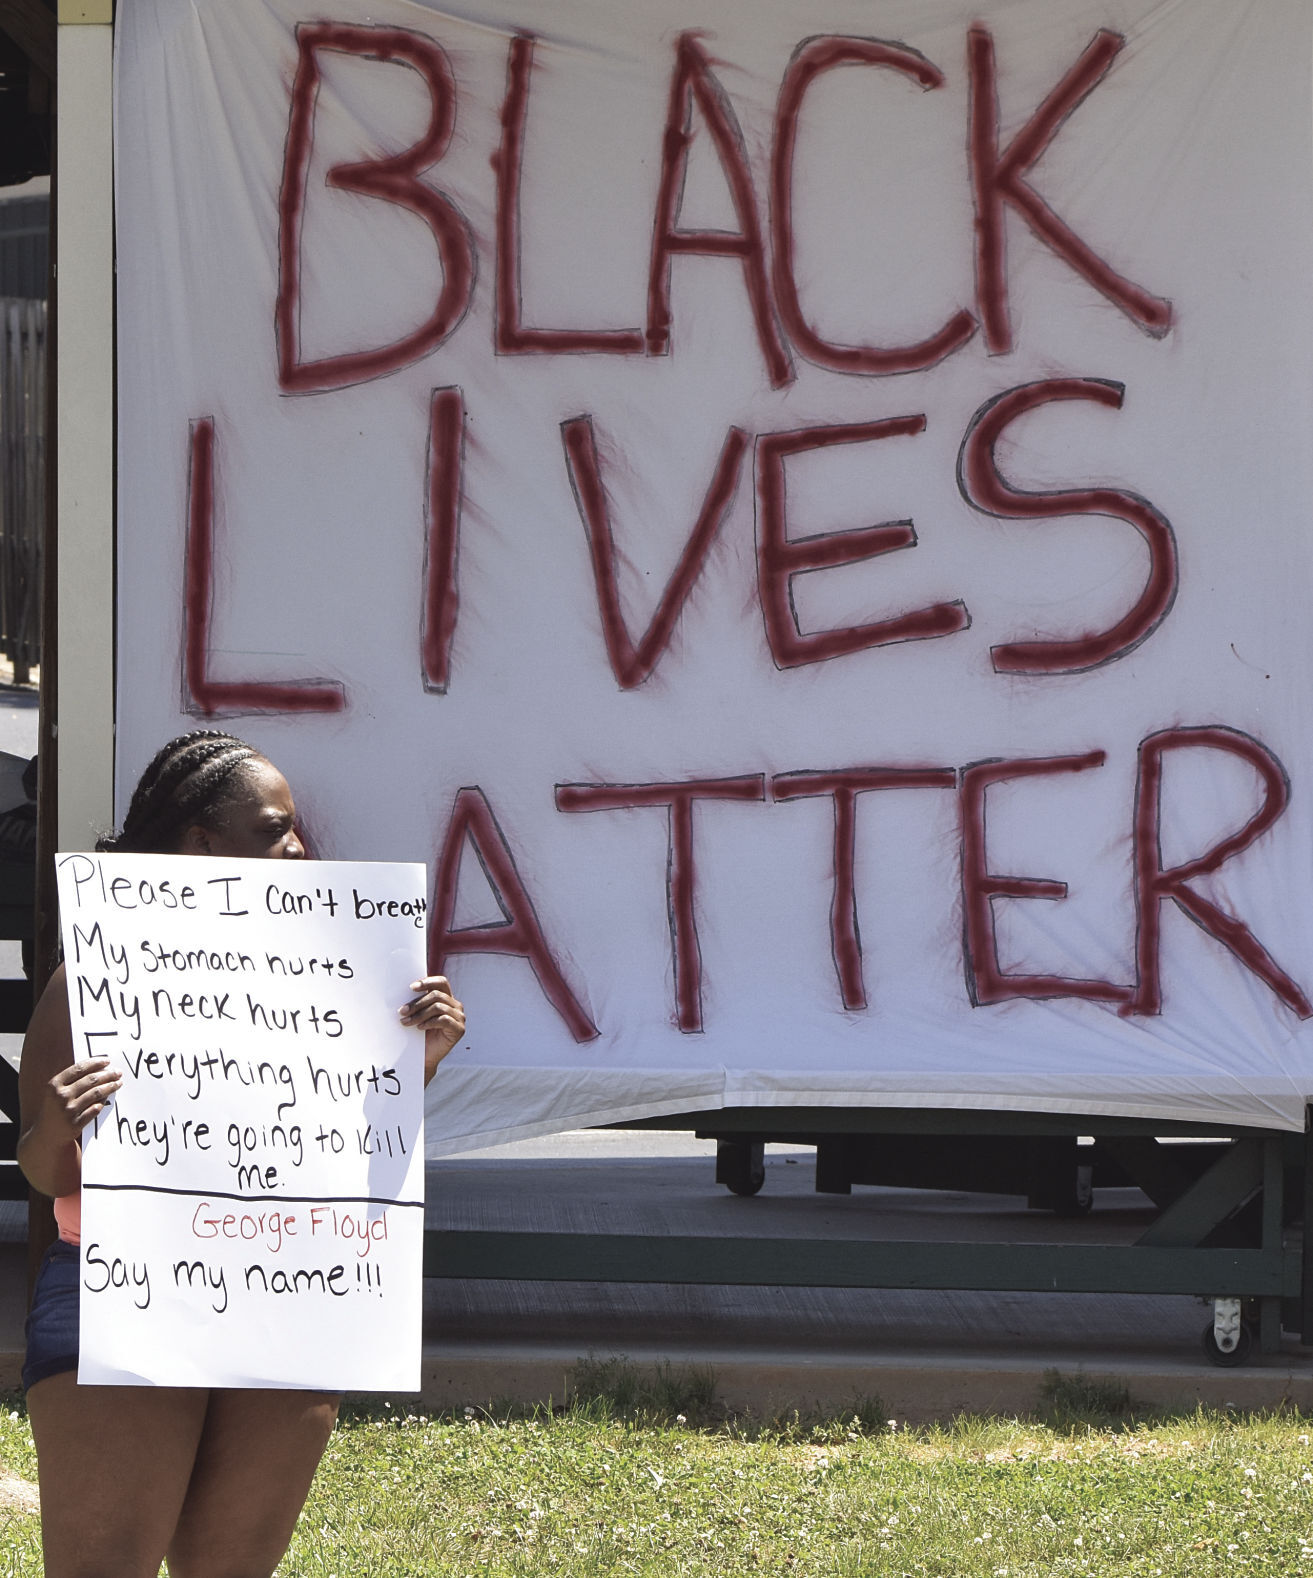 BLACK
LIVES
ATTER
Please I can't breathe
My stomach hurts
My neck hurts
Everything hurts
They're going to Kill
me.
George Floyd
Say my name!!!